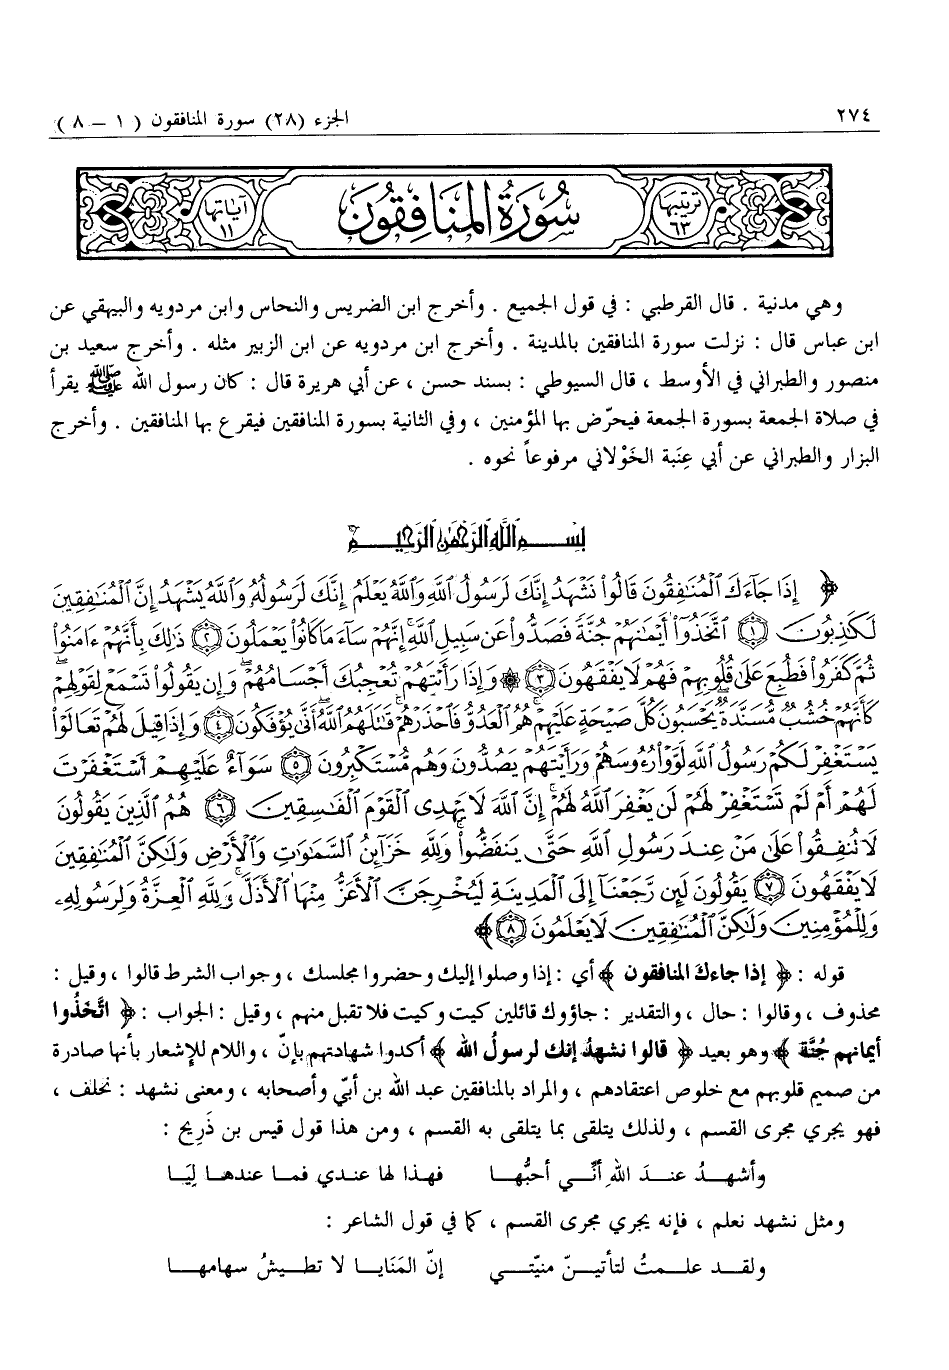 ٢٧٤
الجزء (٢٨) سورة المنافقون ( ١ – ٨ )
ترتيبها ٦٣
سُورَةُ المنَافِقُون
آياتها ١١
وهي مدنية . قال القرطبي : في قول الجميع . وأخرج ابن الضريس والنحاس وابن مردويه والبيهقي عن
ابن عباس قال : نزلت سورة المنافقين بالمدينة . وأخرج ابن مردويه عن ابن الزبير مثله . وأخرج سعيد بن
منصور والطبراني في الأوسط ، قال السيوطي : بسند حسن ، عن أبي هريرة قال : كان رسول الله ﷺ يقرأ
في صلاة الجمعة بسورة الجمعة فيحرّض بها المؤمنين ، وفي الثانية بسورة المنافقين فيقرع بها المنافقين . وأخرج
البزار والطبراني عن أبي عِنَبة الخَوْلاني مرفوعاً نحوه .
بِسْمِ ٱللَّهِ ٱلرَّحْمَٰنِ ٱلرَّحِيمِ
﴿ إِذَا جَآءَكَ ٱلْمُنَٰفِقُونَ قَالُوا۟ نَشْهَدُ إِنَّكَ لَرَسُولُ ٱللَّهِ وَٱللَّهُ يَعْلَمُ إِنَّكَ لَرَسُولُهُۥ وَٱللَّهُ يَشْهَدُ إِنَّ ٱلْمُنَٰفِقِينَ
لَكَٰذِبُونَ ١ ٱتَّخَذُوٓا۟ أَيْمَٰنَهُمْ جُنَّةً فَصَدُّوا۟ عَن سَبِيلِ ٱللَّهِ ۚ إِنَّهُمْ سَآءَ مَا كَانُوا۟ يَعْمَلُونَ ٢ ذَٰلِكَ بِأَنَّهُمْ ءَامَنُوا۟
ثُمَّ كَفَرُوا۟ فَطُبِعَ عَلَىٰ قُلُوبِهِمْ فَهُمْ لَا يَفْقَهُونَ ٣ ۞ وَإِذَا رَأَيْتَهُمْ تُعْجِبُكَ أَجْسَامُهُمْ ۖ وَإِن يَقُولُوا۟ تَسْمَعْ لِقَوْلِهِمْ ۖ
كَأَنَّهُمْ خُشُبٌ مُّسَنَّدَةٌ ۖ يَحْسَبُونَ كُلَّ صَيْحَةٍ عَلَيْهِمْ ۚ هُمُ ٱلْعَدُوُّ فَٱحْذَرْهُمْ ۚ قَٰتَلَهُمُ ٱللَّهُ ۖ أَنَّىٰ يُؤْفَكُونَ ٤ وَإِذَا قِيلَ لَهُمْ تَعَالَوْا۟
يَسْتَغْفِرْ لَكُمْ رَسُولُ ٱللَّهِ لَوَّوْا۟ رُءُوسَهُمْ وَرَأَيْتَهُمْ يَصُدُّونَ وَهُم مُّسْتَكْبِرُونَ ٥ سَوَآءٌ عَلَيْهِمْ أَسْتَغْفَرْتَ
لَهُمْ أَمْ لَمْ تَسْتَغْفِرْ لَهُمْ لَن يَغْفِرَ ٱللَّهُ لَهُمْ ۚ إِنَّ ٱللَّهَ لَا يَهْدِى ٱلْقَوْمَ ٱلْفَٰسِقِينَ ٦ هُمُ ٱلَّذِينَ يَقُولُونَ
لَا تُنفِقُوا۟ عَلَىٰ مَنْ عِندَ رَسُولِ ٱللَّهِ حَتَّىٰ يَنفَضُّوا۟ ۗ وَلِلَّهِ خَزَآئِنُ ٱلسَّمَٰوَٰتِ وَٱلْأَرْضِ وَلَٰكِنَّ ٱلْمُنَٰفِقِينَ
لَا يَفْقَهُونَ ٧ يَقُولُونَ لَئِن رَّجَعْنَآ إِلَى ٱلْمَدِينَةِ لَيُخْرِجَنَّ ٱلْأَعَزُّ مِنْهَا ٱلْأَذَلَّ ۚ وَلِلَّهِ ٱلْعِزَّةُ وَلِرَسُولِهِۦ
وَلِلْمُؤْمِنِينَ وَلَٰكِنَّ ٱلْمُنَٰفِقِينَ لَا يَعْلَمُونَ ٨ ﴾
قوله : ﴿ إذا جاءكَ المنافقون ﴾ أي : إذا وصلوا إليك وحضروا مجلسك ، وجواب الشرط قالوا ، وقيل :
محذوف ، وقالوا : حال ، والتقدير : جاؤوك قائلين كيت وكيت فلا تقبل منهم ، وقيل : الجواب : ﴿ اتَّخَذُوا
أيمانهم جُنَّة ﴾ وهو بعيد ﴿ قالوا نشهدُ إنك لرسولُ الله ﴾ أكدوا شهادتهم بإنّ ، واللام للإشعار بأنها صادرة
من صميم قلوبهم مع خلوص اعتقادهم ، والمراد بالمنافقين عبد الله بن أبيّ وأصحابه ، ومعنى نشهد : نحلف ،
فهو يجري مجرى القسم ، ولذلك يتلقى بما يتلقى به القسم ، ومن هذا قول قيس بن ذَرِيح :
وأشهدُ عندَ اللهِ أنّي أحبُّها فهذا لها عندي فما عندها لِيَا
ومثل نشهد نعلم ، فإنه يجري مجرى القسم ، كما في قول الشاعر :
ولقد علمتُ لتأتينّ منيّتي إنّ المَنَايا لا تطيشُ سهامها